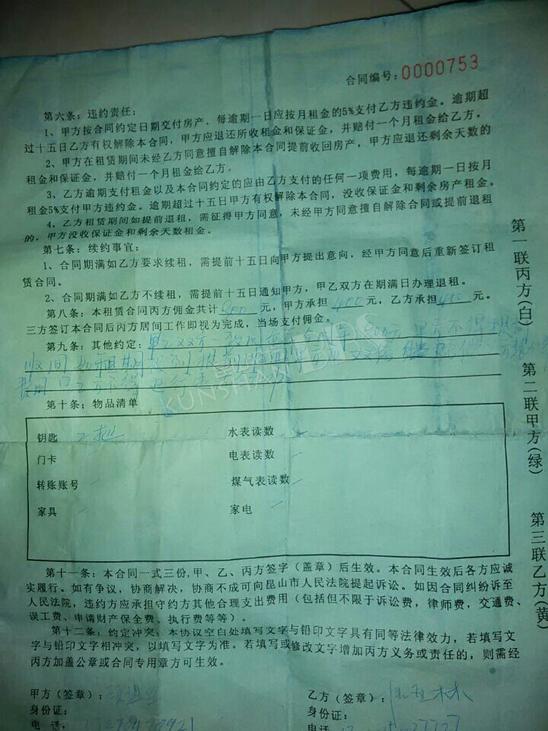 合同编号:0000753
第六条:违约责任:
1、甲方按合同约定日期交付房产,每逾期一日应按月租金的5%支付乙方违约金。逾期超
过十五日乙方有权解除本合同,甲方应退还所收租金和保证金,并赔付一个月租金给乙方。
2、甲方在租赁期间未经乙方同意擅自解除本合同提前收回房产,甲方应退还剩余天数的
租金和保证金,并赔付一个月租金给乙方。
3、乙方逾期支付租金以及本合同约定的应由乙方支付的任何一项费用,每逾期一日按月
租金5%支付甲方违约金。逾期超过十五日甲方有权解除本合同,没收保证金和剩余房产租金。
4、乙方租赁期间如提前退租,需征得甲方同意,未经甲方同意擅自解除合同或提前退租
的,甲方没收保证金和剩余天数租金。
第七条:续约事宜:
1、合同期满如乙方要求续租,需提前十五日向甲方提出意向,经甲方同意后重新签订租
赁合同。
2、合同期满如乙方不续租,需提前十五日通知甲方,甲乙双方在期满日办理退租。
第八条:本租赁合同丙方佣金共计 元,甲方承担 元,乙方承担 元,
三方签订本合同后丙方居间工作即视为完成,当场支付佣金。
第九条:其他约定:
第十条:物品清单
钥匙 水表读数
门卡 电表读数
转账账号 煤气表读数
家具 家电
第十一条:本合同一式三份,甲、乙、丙方签字(盖章)后生效。本合同生效后各方应诚
实履行。如有争议,协商解决,协商不成可向昆山市人民法院提起诉讼。如因合同纠纷诉至
人民法院,违约方应承担守约方其他合理支出费用(包括但不限于诉讼费,律师费,交通费、
误工费、申请财产保全费、执行费等等)。
第十二条:约定冲突:本协议空白处填写文字与铅印文字具有同等法律效力,若填写文
字与铅印文字相冲突,以填写文字为准。若填写或修改文字增加丙方义务或责任的,则需经
丙方加盖公章或合同专用章方可生效。
甲方(签章): 乙方(签章):
身份证: 身份证:
电话: 电话:
第一联丙方(白) 第二联甲方(绿) 第三联乙方(黄)